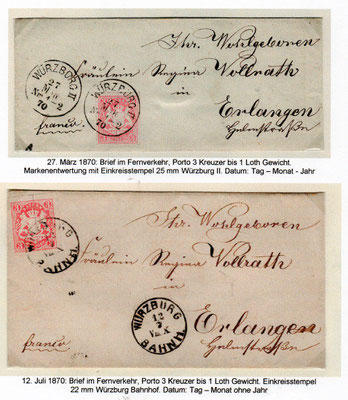 Ihro Wohlgeboren
WÜRZBURG II
27
70 2
WÜRZBURG II
70 2
Fräulein Regina Vollrath
in
Erlangen
franco
27. März 1870: Brief im Fernverkehr, Porto 3 Kreuzer bis 1 Loth Gewicht.
Markenentwertung mit Einkreisstempel 25 mm Würzburg II. Datum: Tag – Monat - Jahr
Ihro Wohlgeboren
WÜRZBURG
BAHNH.
Fräulein Regina Vollrath
WÜRZBURG
12
7
BAHNH.
in
Erlangen
franco
12. Juli 1870: Brief im Fernverkehr, Porto 3 Kreuzer bis 1 Loth Gewicht. Einkreisstempel
22 mm Würzburg Bahnhof. Datum: Tag – Monat ohne Jahr